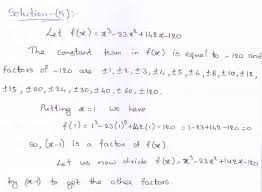 Solution-(9):-
Let f(x) = x³-23x²+142x-120
The constant term in f(x) is equal to -120 and
factors of -120 are ±1, ±2, ±3, ±4, ±5, ±6, ±8, ±10, ±12,
±15, ±20, ±24, ±30, ±40, ±60, ±120.
Putting x=1 we have
f(1) = 1³-23(1)²+142(1)-120 = 1-23+142-120 = 0
So, (x-1) is a factor of f(x).
Let us now divide f(x) = x³-23x²+142x-120
by (x-1) to get the other factors.